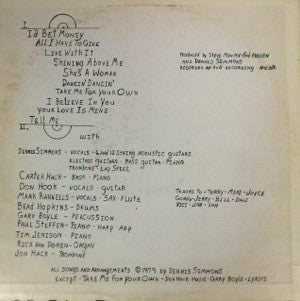 I.
I'd Bet Money
All I Have To Give
Live With It
Shining Above Me
She's A Woman
Dancin' Dancin'
Take Me For Your Own
I Believe In You
Your Love Is Mine
Tell Me
II.
Produced by Steve
and Dennis Simmons
Recorded at Recording
with
Dennis Simmons - vocals - 6 and 12 string acoustic guitars
electric guitars - bass guitar - piano
trombone - lap steel
Carter Hack - bass - piano
Don Hoor - vocals - guitar
Mark Rannells - vocals - sax - flute
Brad Hopkins - drums
Gary Boyle - percussion
Paul Steffen - piano - harp - arp
Tim Jenison - piano
Rick Van Doren - organ
Jon Hack - trombone
Thanks to - Terry - Mike - Joyce
Cindy - Jerry - Bill - Dave
All songs and arrangements © 1979 by Dennis Simmons
Except - Take Me For Your Own - Don Hoor Music - Gary Boyle - Lyrics